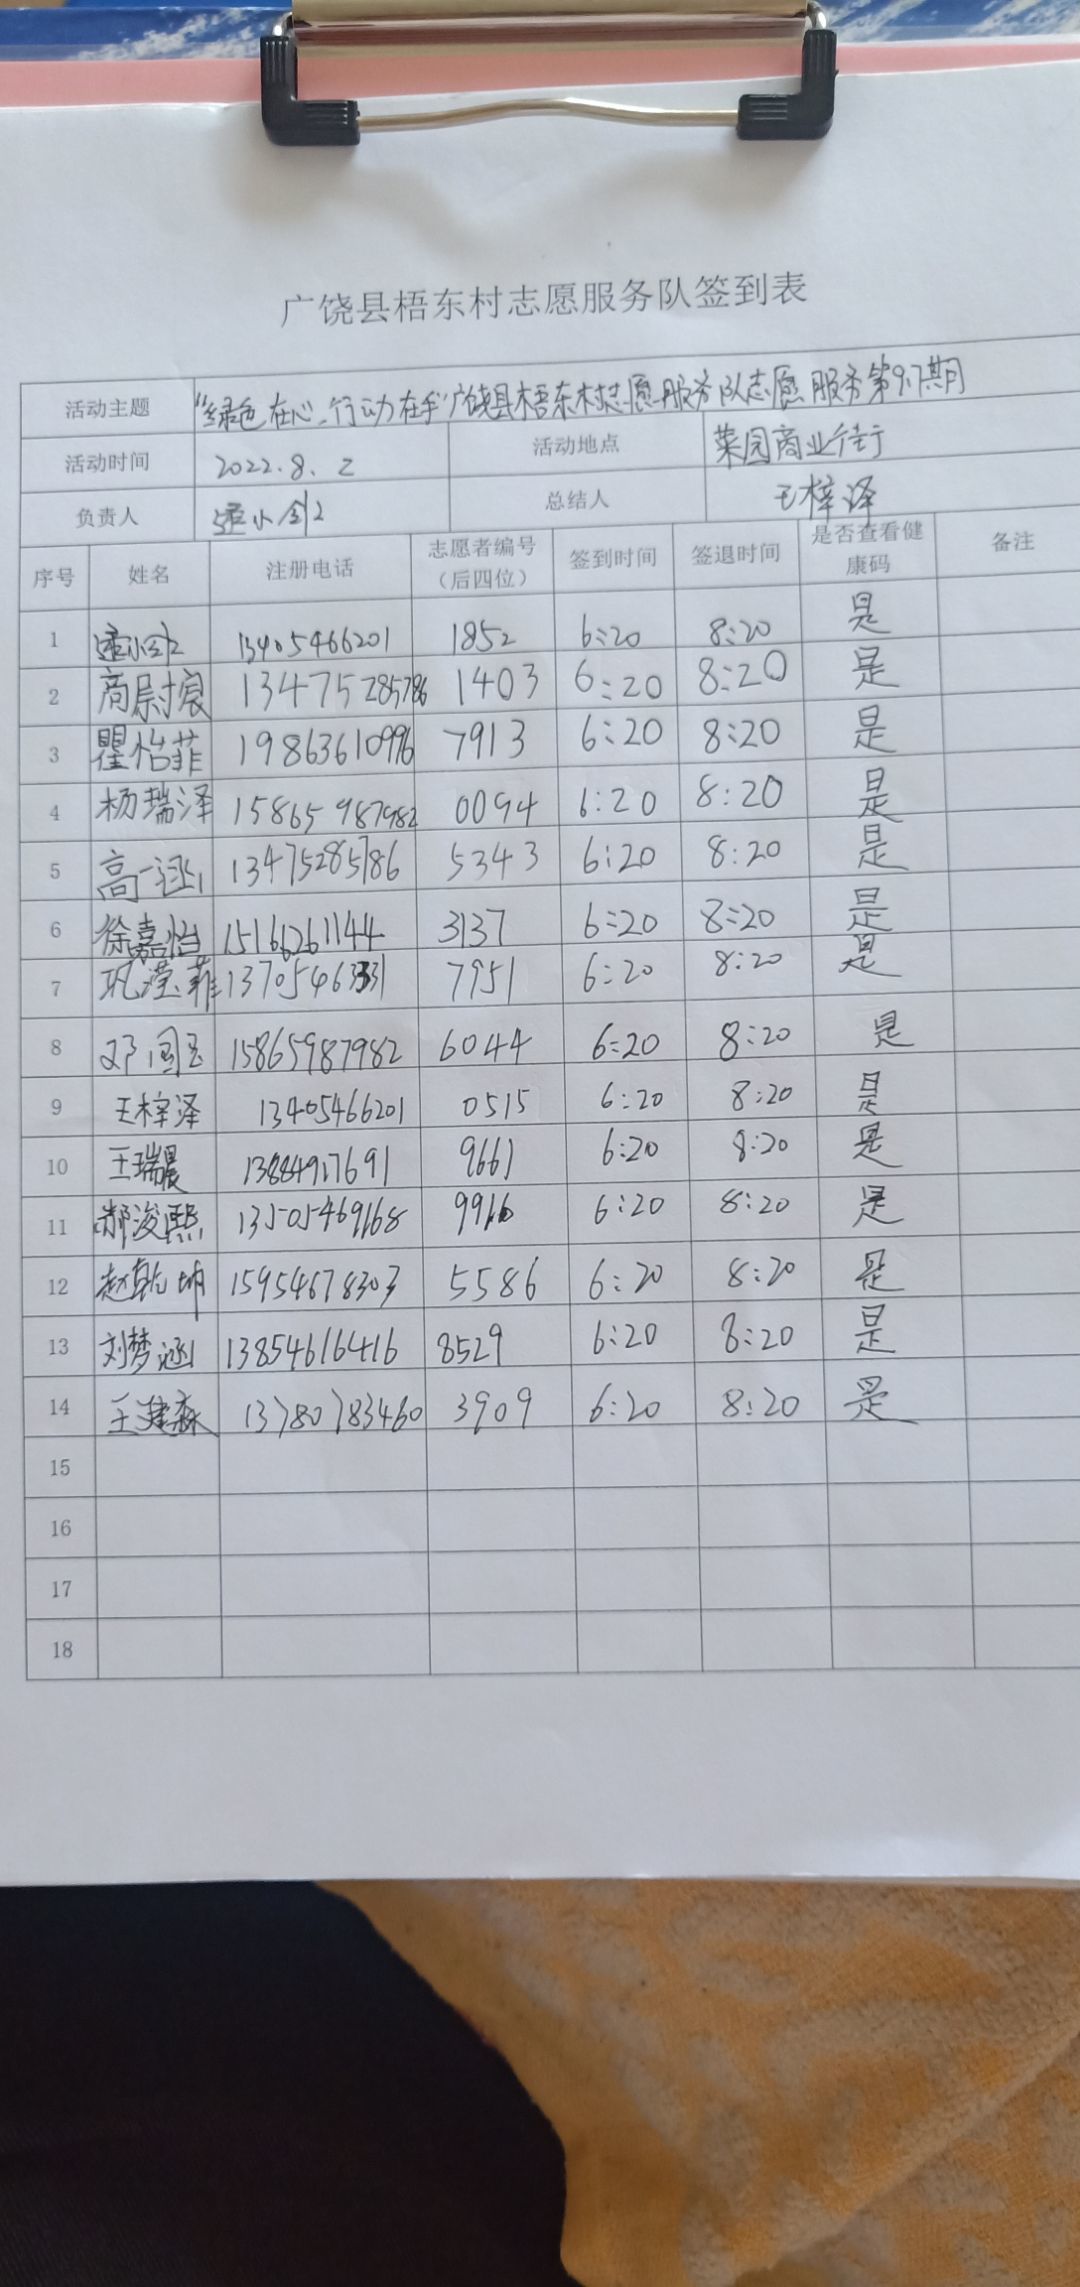 广饶县梧东村志愿服务队签到表
活动主题 "绿色在心、行动在手"广饶县梧东村志愿服务队志愿服务第97期
活动时间 2022.8.2 活动地点 菜园商业街
负责人 总结人 王梓泽
序号 姓名 注册电话 志愿者编号（后四位） 签到时间 签退时间 是否查看健康码 备注
1 13405466201 1852 6:20 8:20 是
2 商尉宸 13475285786 1403 6:20 8:20 是
3 瞿怡菲 19863610996 7913 6:20 8:20 是
4 杨瑞泽 15865987982 0094 6:20 8:20 是
5 高一涵 13475285786 5343 6:20 8:20 是
6 徐嘉怡 15166261144 3137 6:20 8:20 是
7 巩滢菲 13705463331 7951 6:20 8:20 是
8 邓国玉 15865987982 6044 6:20 8:20 是
9 王梓泽 13405466201 0515 6:20 8:20 是
10 王瑞晨 13884917691 9661 6:20 8:20 是
11 郝浚熙 13505469168 9916 6:20 8:20 是
12 赵乾坤 15954678303 5586 6:20 8:20 是
13 刘梦涵 13854616416 8529 6:20 8:20 是
14 王建森 13780783460 3909 6:20 8:20 是
15
16
17
18